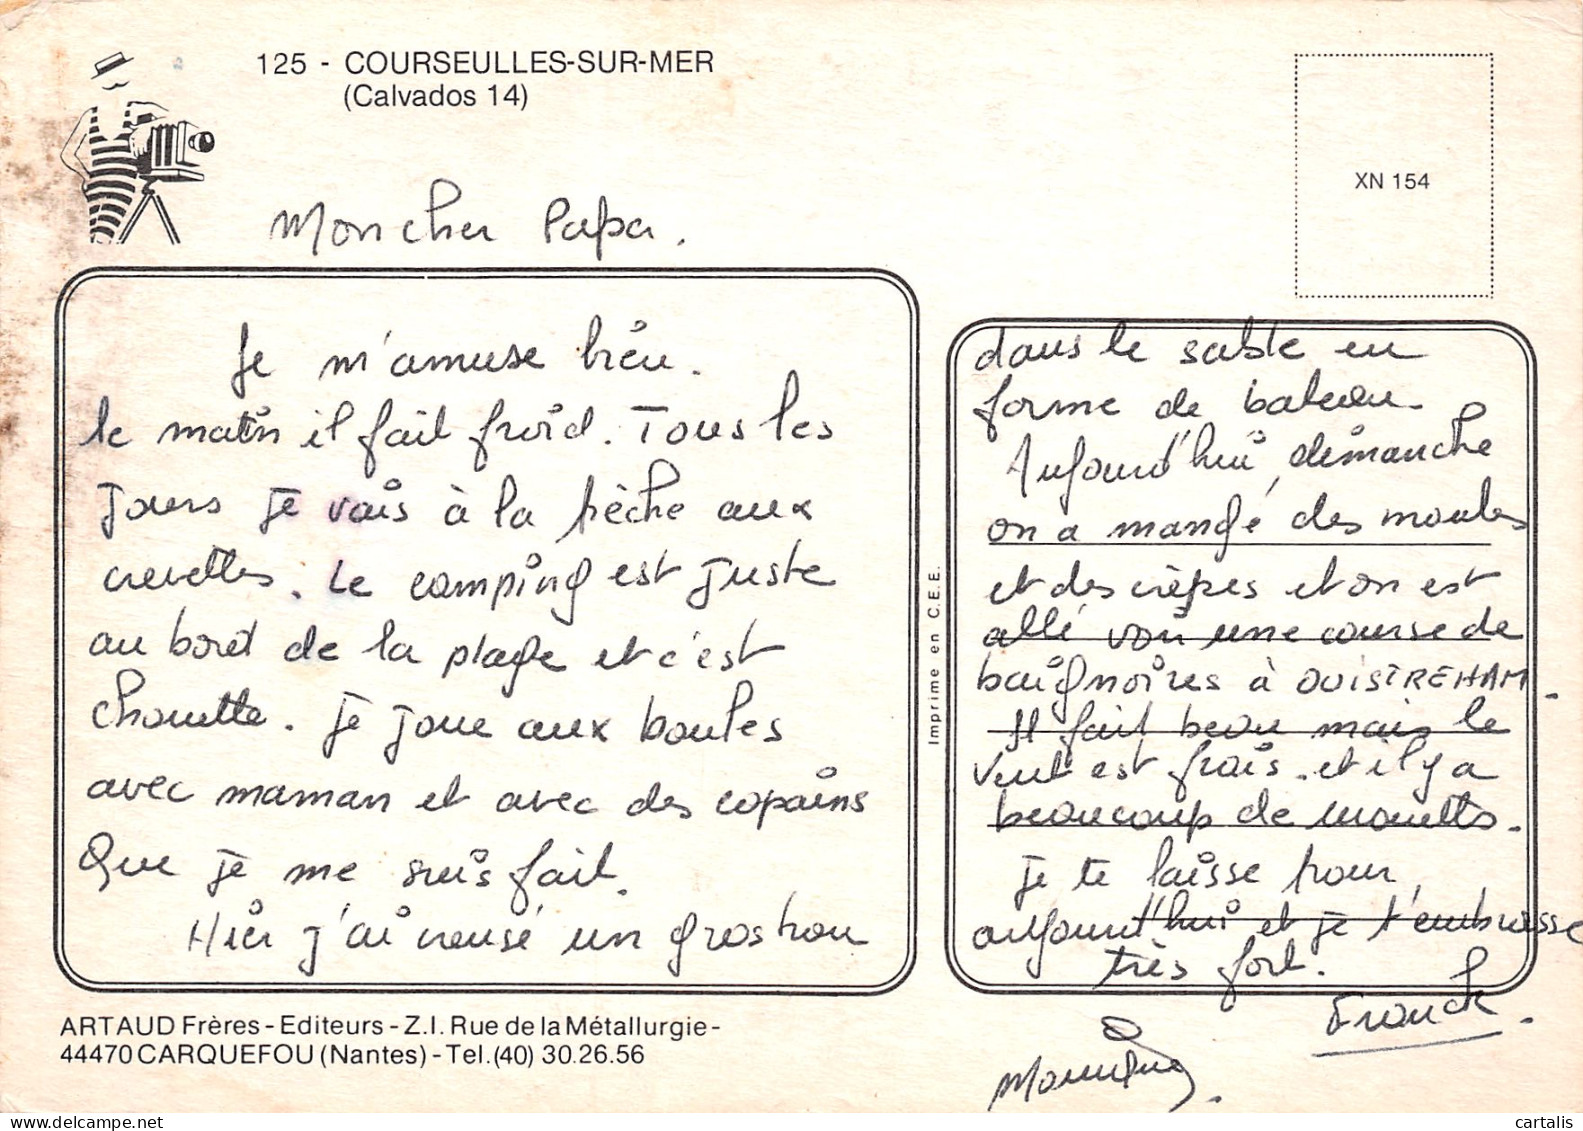 125 - COURSEULLES-SUR-MER
(Calvados 14)
XN 154
Mon cher Papa.
Je m'amuse bien.
le matin il fait froid. Tous les
jours je vais à la pèche aux
crevettes. Le camping est juste
au bord de la plage et c'est
chouette. je joue aux boules
avec maman et avec des copains
Que je me suis fait.
Hier j'ai creusé un gros trou
dans le sable en
forme de bateau.
Aujourd'hui, dimanche
on a mangé des moules
et des crèpes et on est
allé voir une course de
baignoires à OUISTREHAM.
Il fait beau mais le
vent est frais. et il y a
beaucoup de mouettes.
je te laisse pour
aujourd'hui et je t'embrasse
très fort.
Franck.
Imprimé en C.E.E.
ARTAUD Frères - Editeurs - Z.I. Rue de la Métallurgie -
44470 CARQUEFOU (Nantes) - Tel. (40) 30.26.56
delcampe.net
cartalis